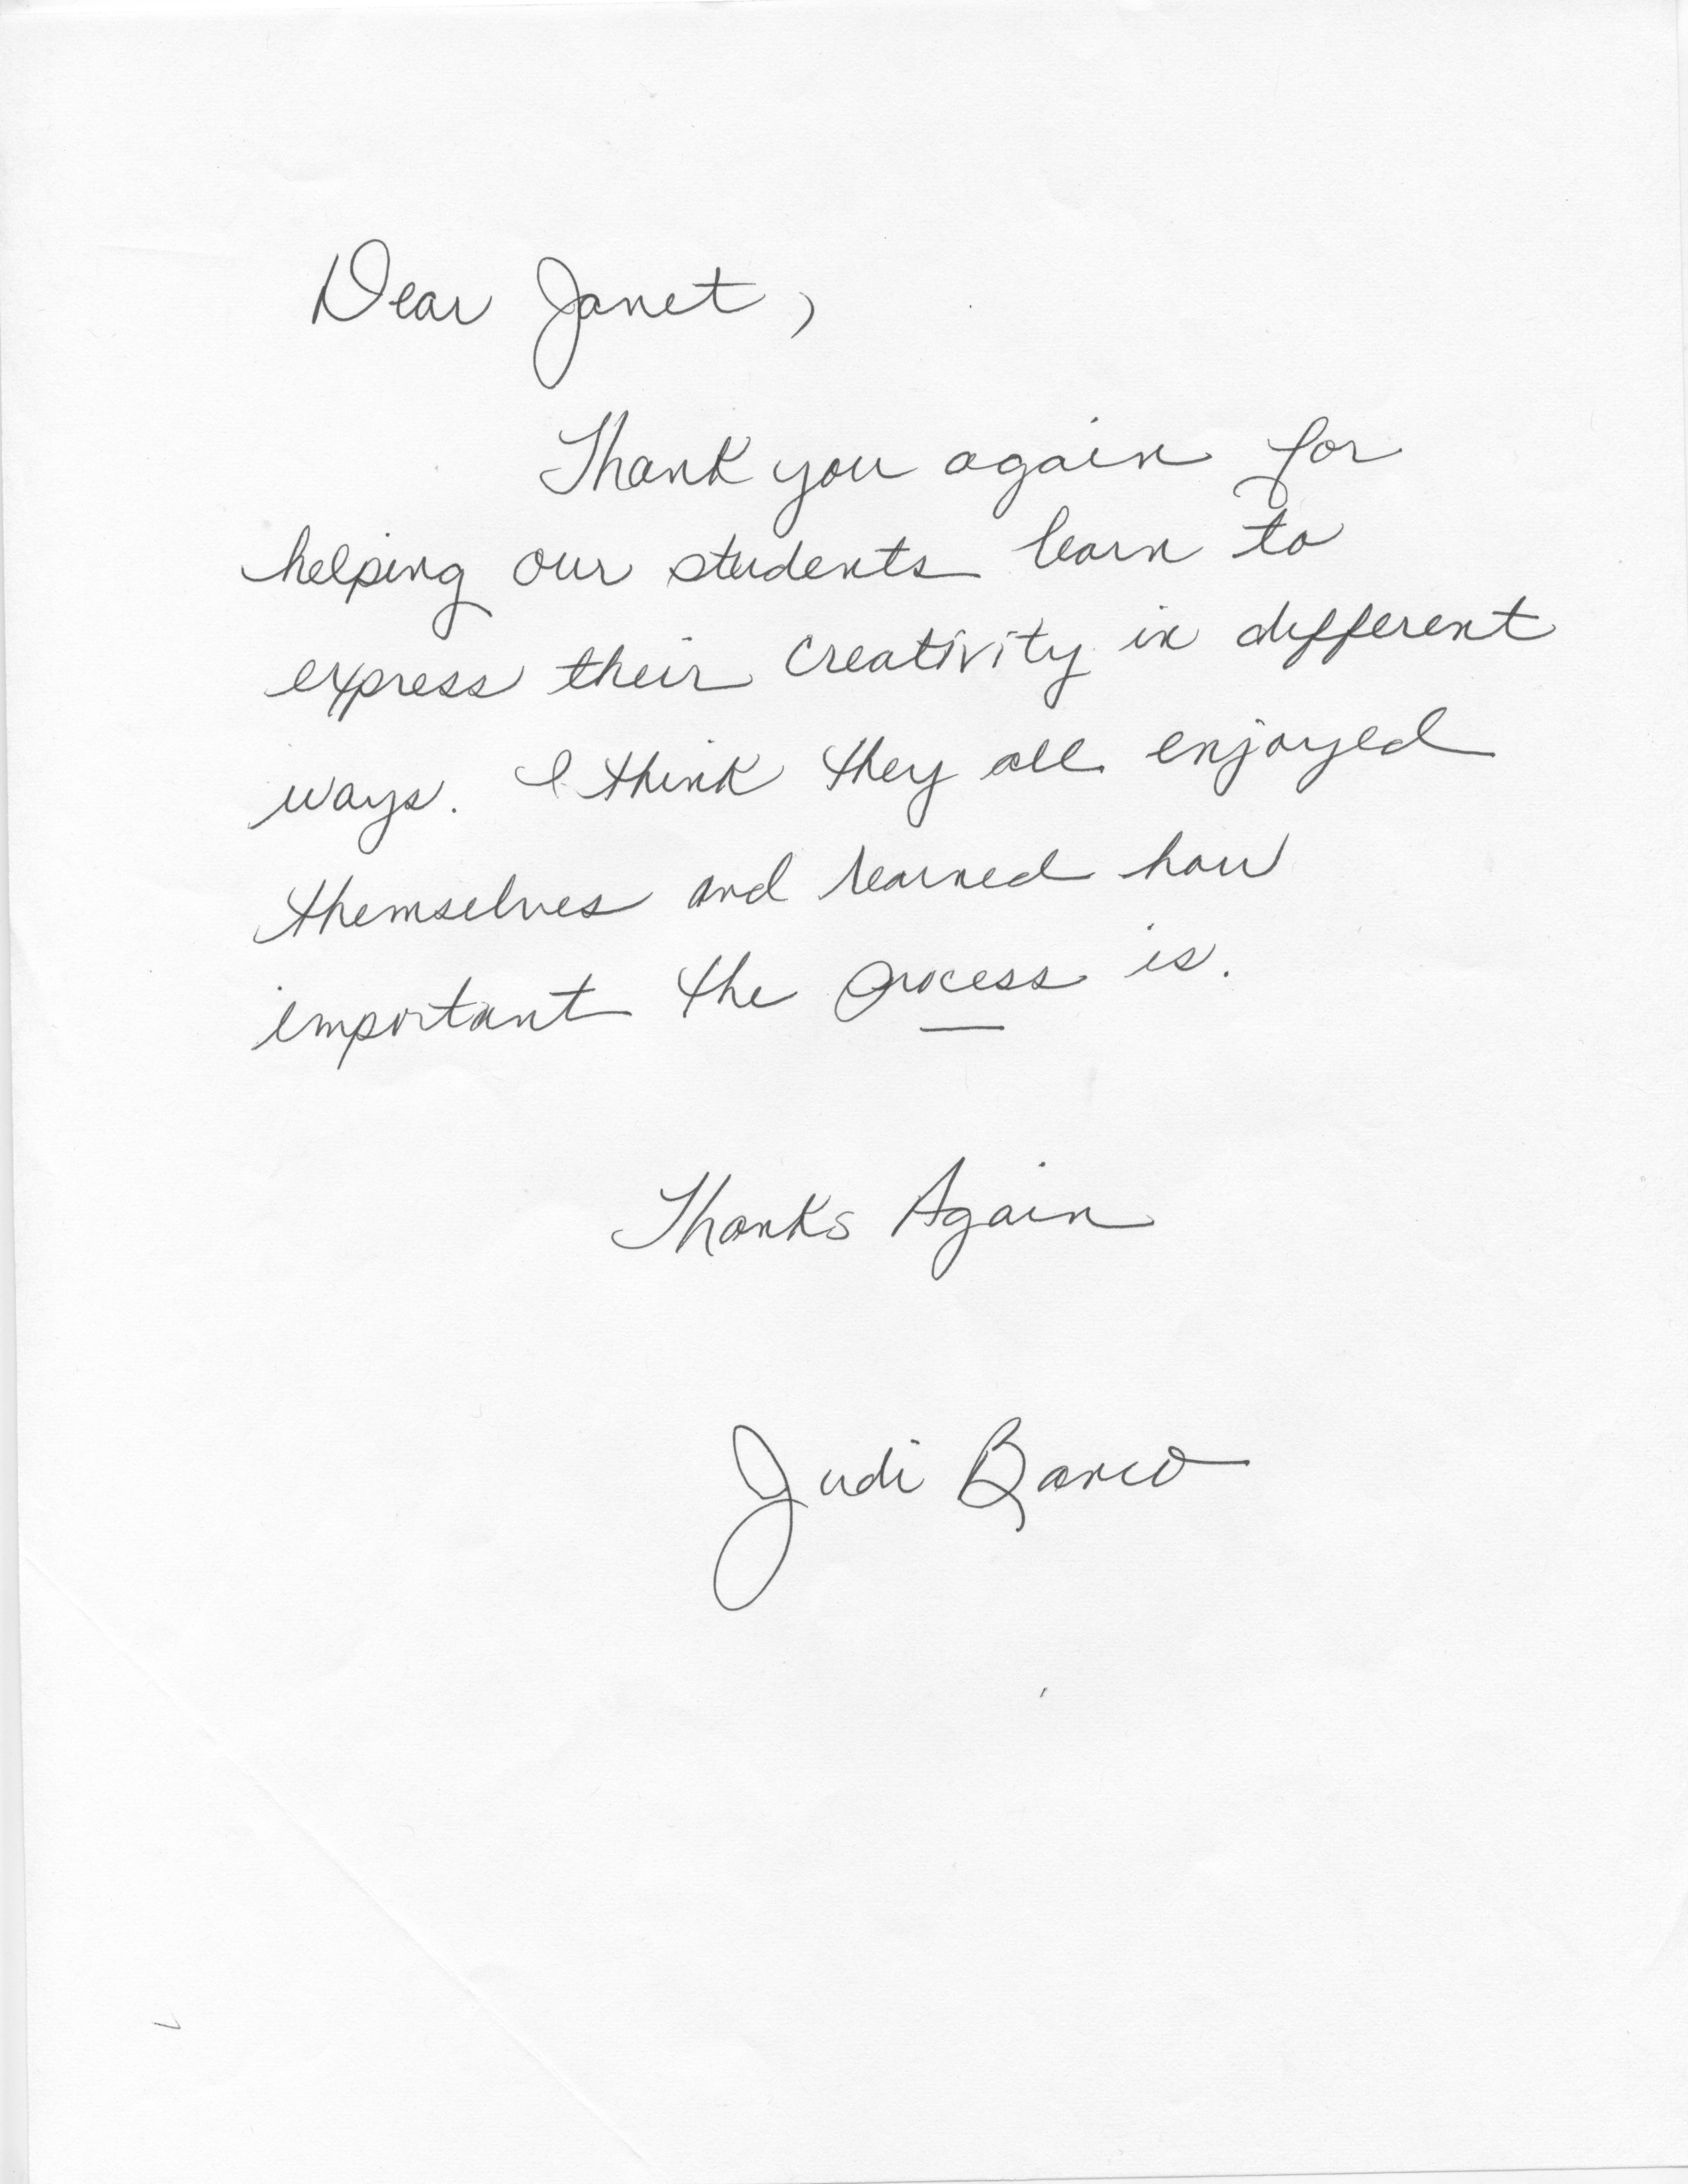 Dear Janet,
Thank you again for
helping our students learn to
express their creativity in different
ways. I think they all enjoyed
themselves and learned how
important the process is.
Thanks Again
Judi Banco